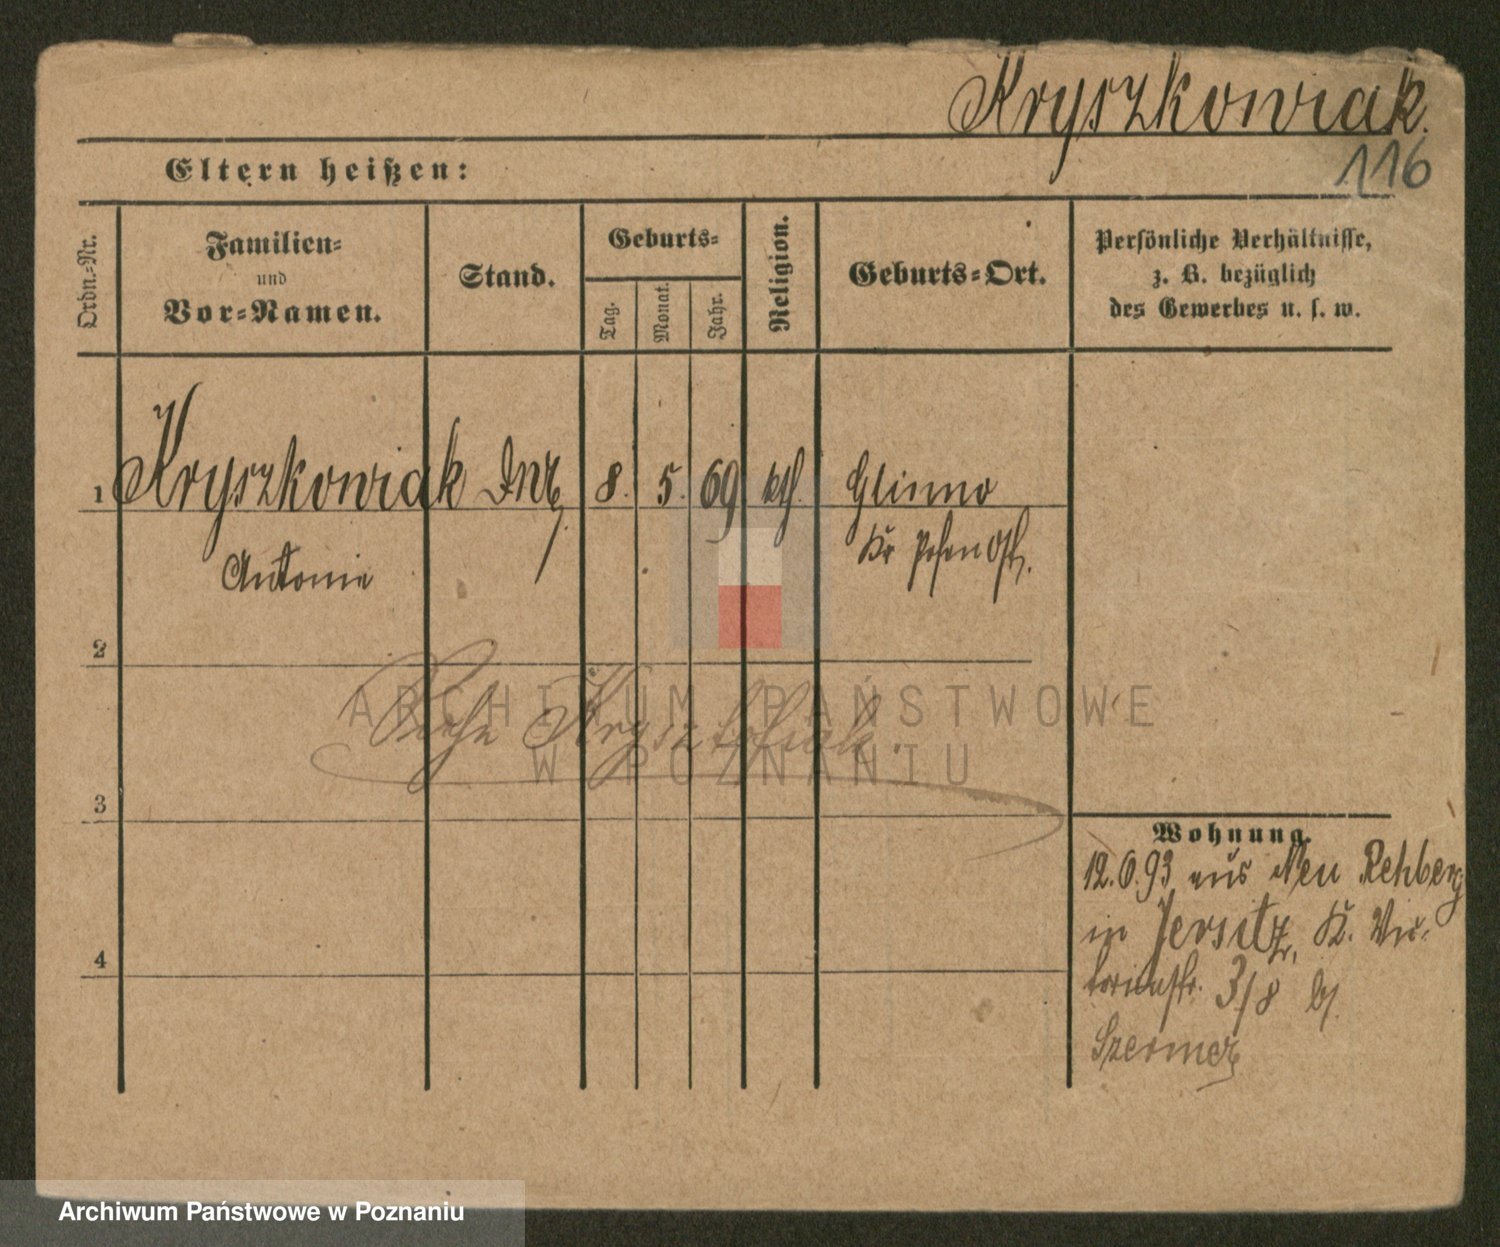 Kryszkowiak.
116
Eltern heißen:
Ordn.-Nr.
Familien-
und
Vor-Namen.
Stand.
Geburts-
Tag.
Monat.
Jahr.
Religion.
Geburts-Ort.
Persönliche Verhältnisse,
z. B. bezüglich
des Gewerbes u. s. w.
1 Kryszkowiak 8. 5. 69 kth. Glinno
Antonie Kr Posen Ost.
2
Siehe
ARCHIWUM PAŃSTWOWE
W POZNANIU
3
Wohnung.
12.6.93 aus Neu Rehberg
in Jersitz, K. Vic-
toriastr. 3/8 b/
4
Archiwum Państwowe w Poznaniu